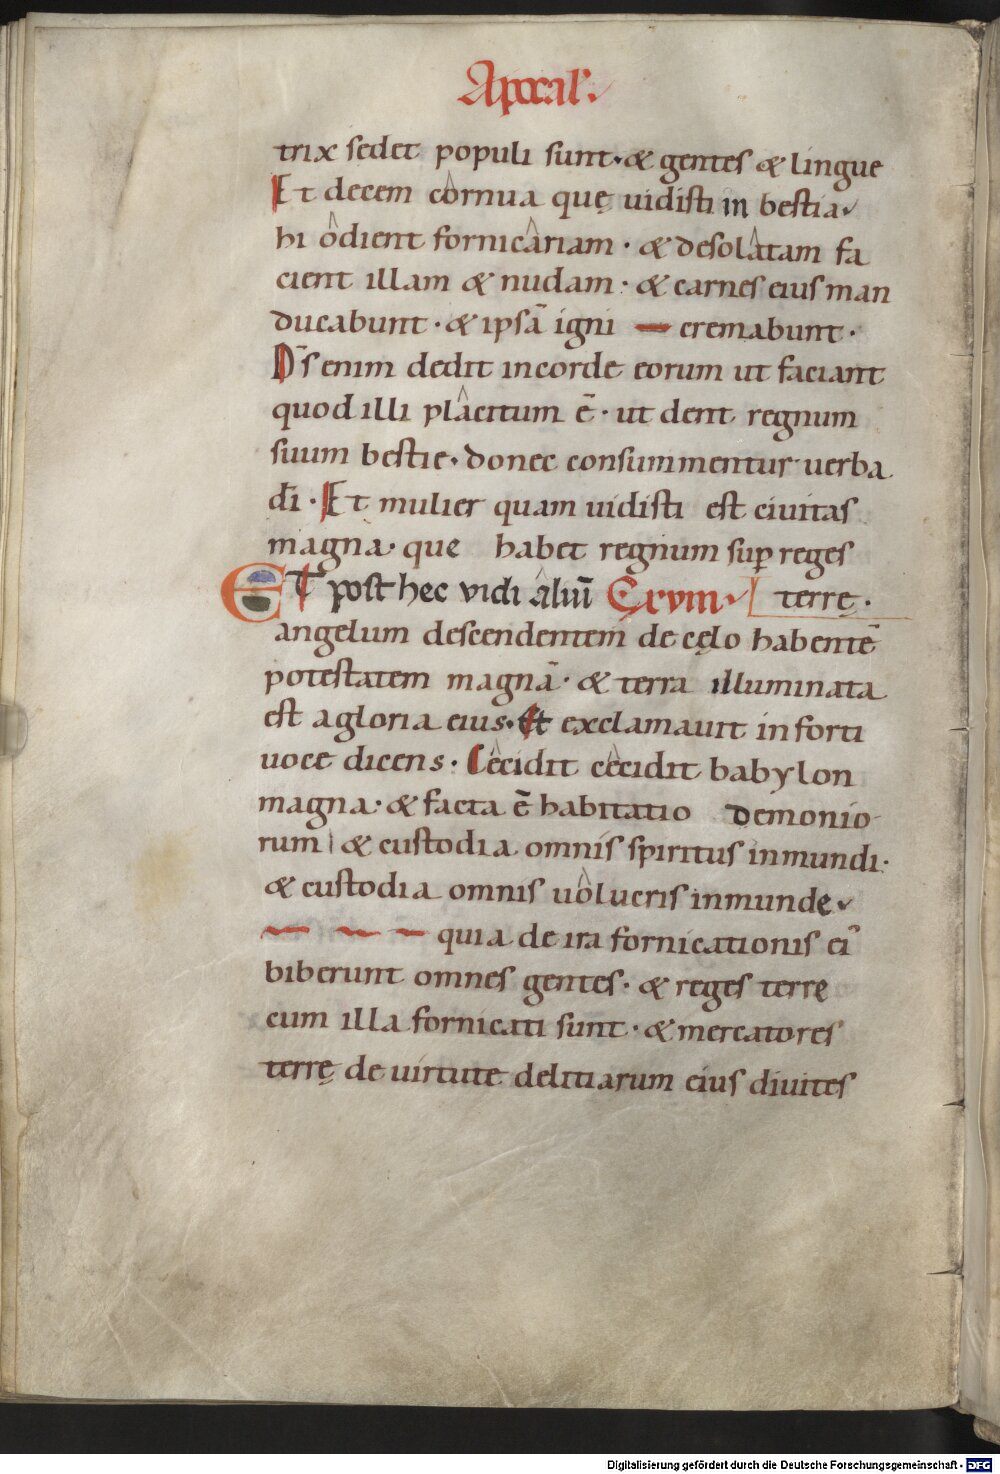 Apocal'.
trix sedet populi sunt. & gentes & lingue
Et decem cornua quę uidisti in bestia
hi odient fornicariam. & desolatam fa
cient illam & nudam. & carnes eius man
ducabunt. & ipsā igni cremabunt.
D̄s enim dedit in corde eorum ut faciant
quod illi placitum ē. ut dent regnum
suum bestie. donec consummentur uerba
dī. Et mulier quam uidisti est ciuitas
magna. que habet regnum suꝑ reges
terrę.
ET post hec vidi aliū C xvııı
angelum descendentem de cęlo habentē
potestatem magnā. & terra illuminata
est a gloria eius. Et exclamauit in forti
uoce dicens. Cecidit cecidit babylon
magna. & facta ē habitatio demonio
rum & custodia omnis spiritus inmundi.
& custodia omnis uolucris inmundę
quia de ira fornicationis ei'
biberunt omnes gentes. & reges terrę
cum illa fornicati sunt. & mercatores
terrę de uirtute delitiarum eius diuites
Digitalisierung gefördert durch die Deutsche Forschungsgemeinschaft - DFG